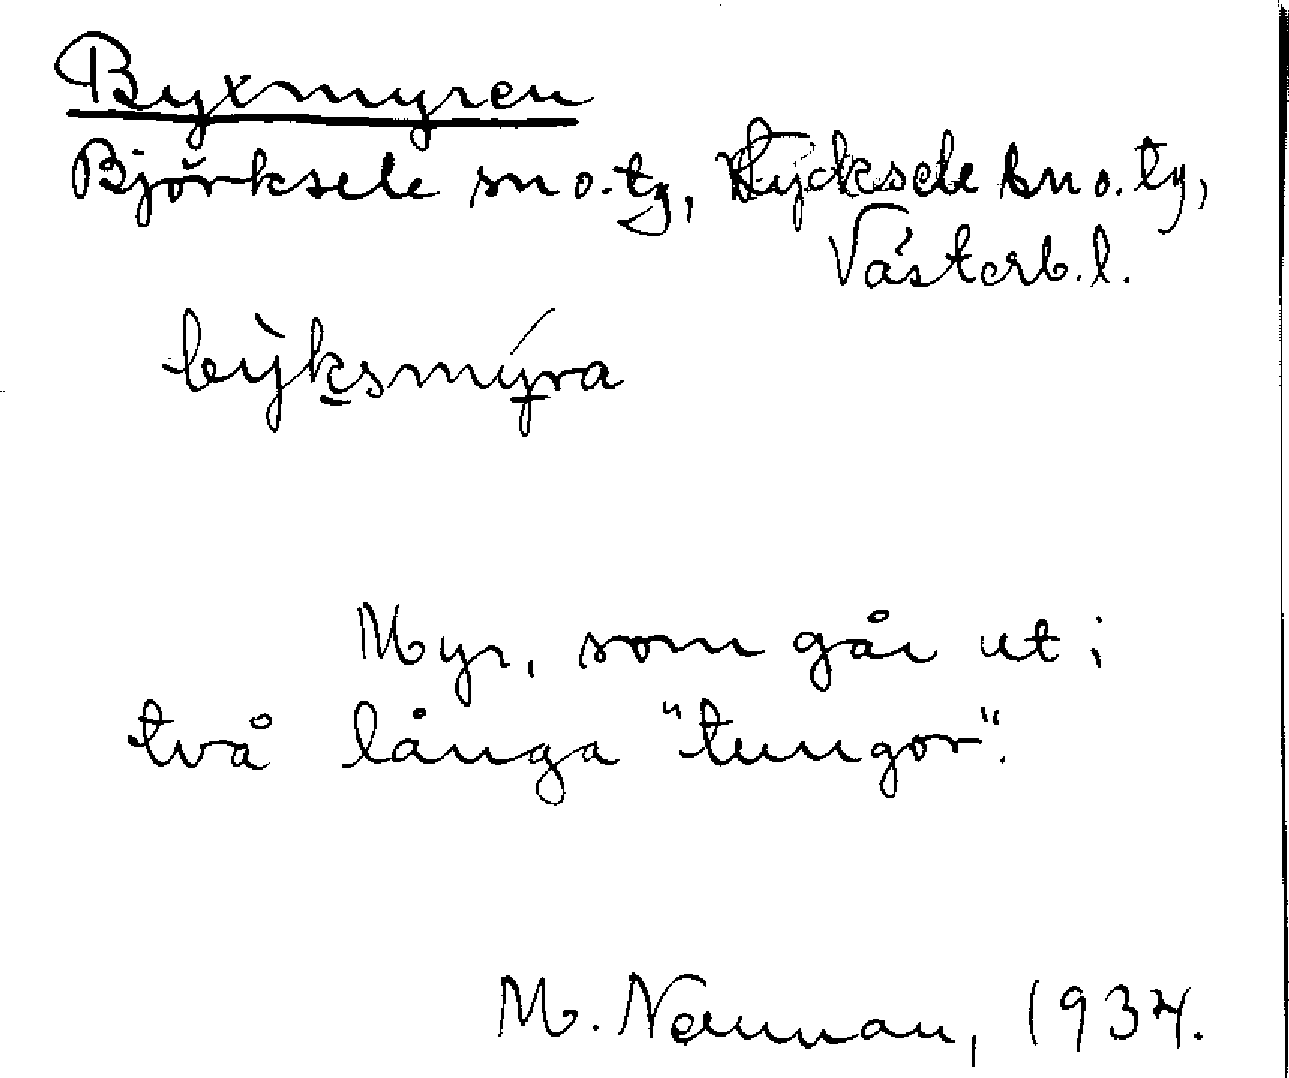 Byxmyren
Björksele sn o. tg, Lycksele sn o. tg,
Västerb. l.
bỳksmýra
Myr, som går ut i
två långa "tungor".
M. Nennan, 1934.